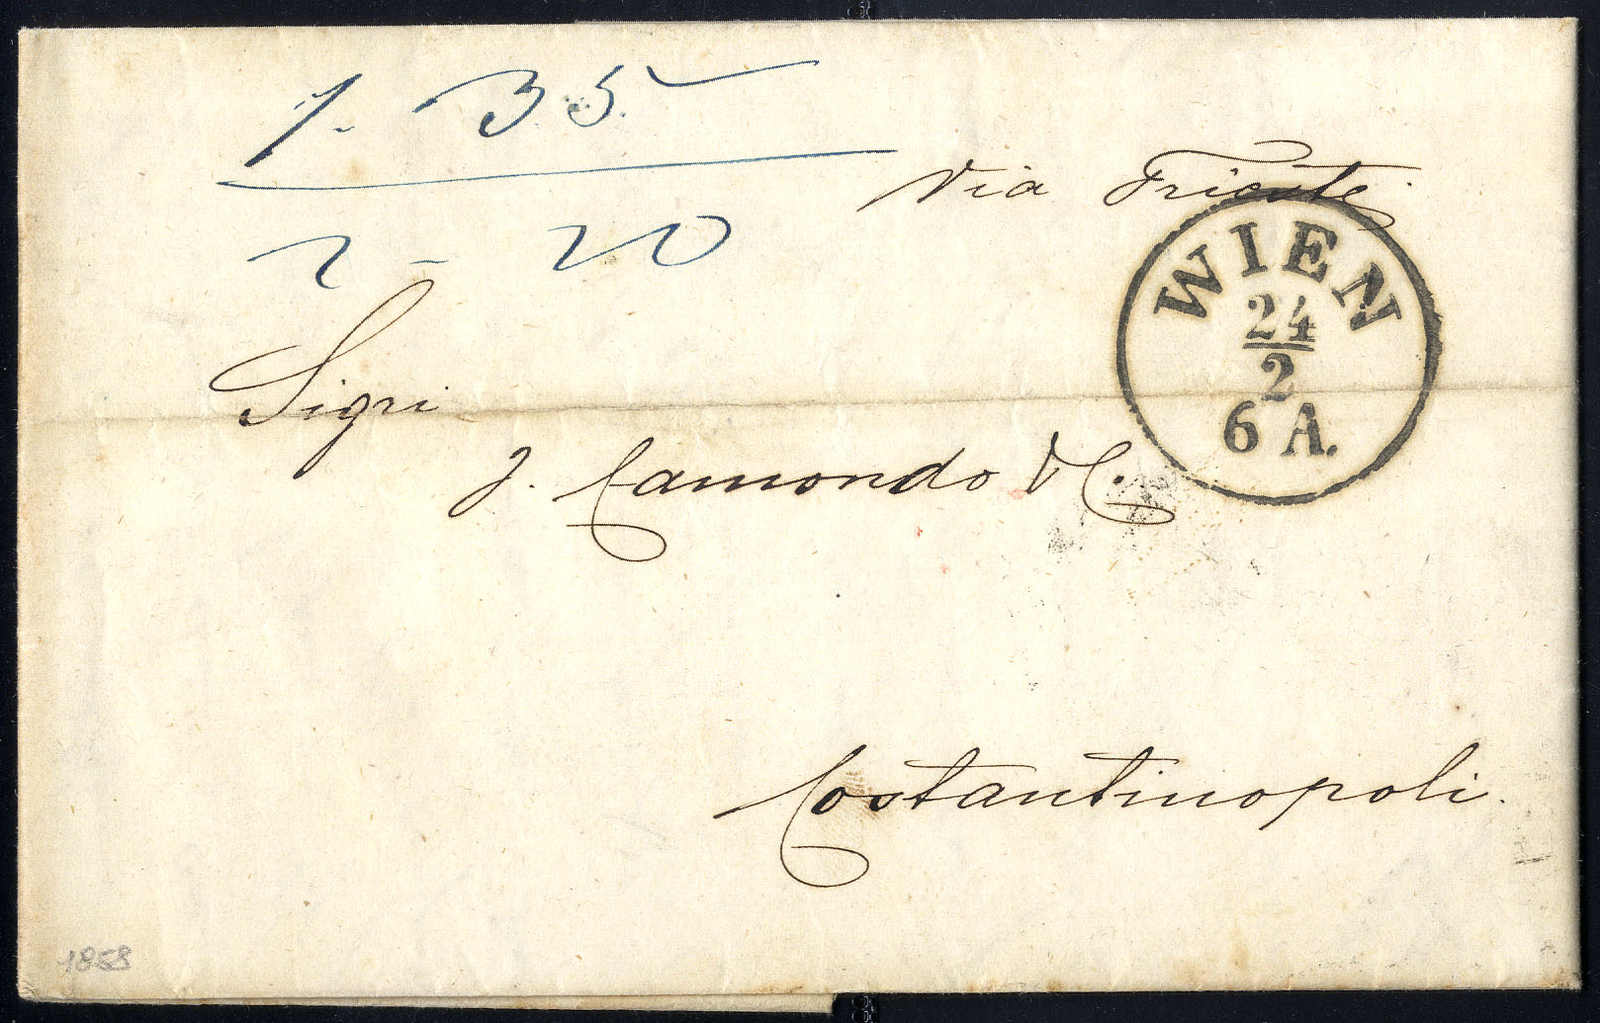 1. 35.
2 - 20
Via Trieste
WIEN
24
2
6 A.
Sigri
J. Camondo & C.
Costantinopoli.
1858